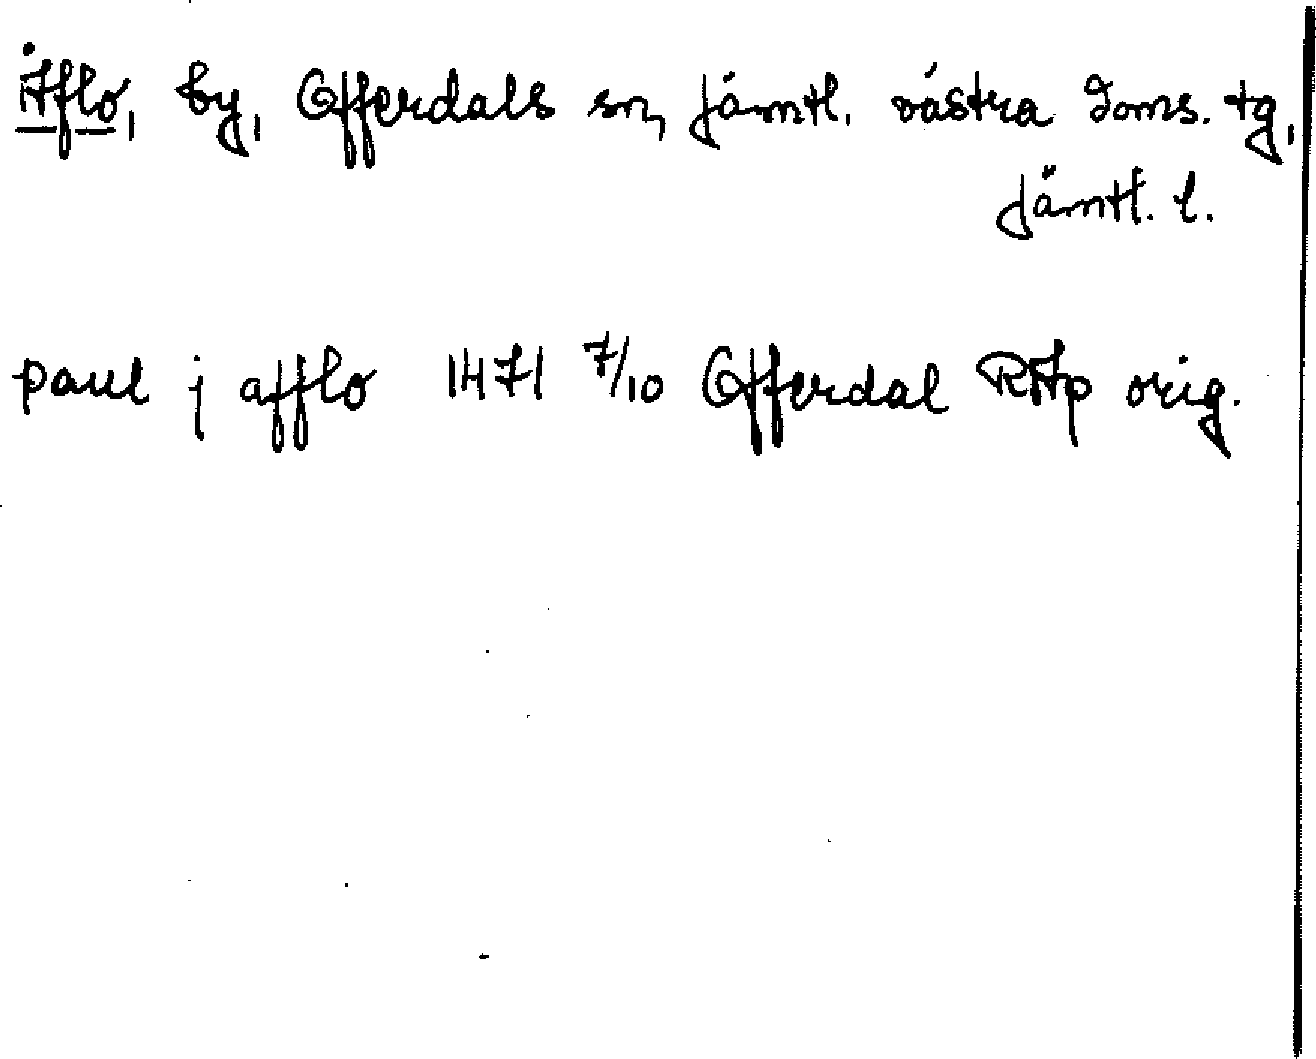 Åflo, by, Offerdals sn, Jämtl. västra doms. tg,
Jämtl. l.
paul j afflo 1471 7/10 Offerdal RAp orig.